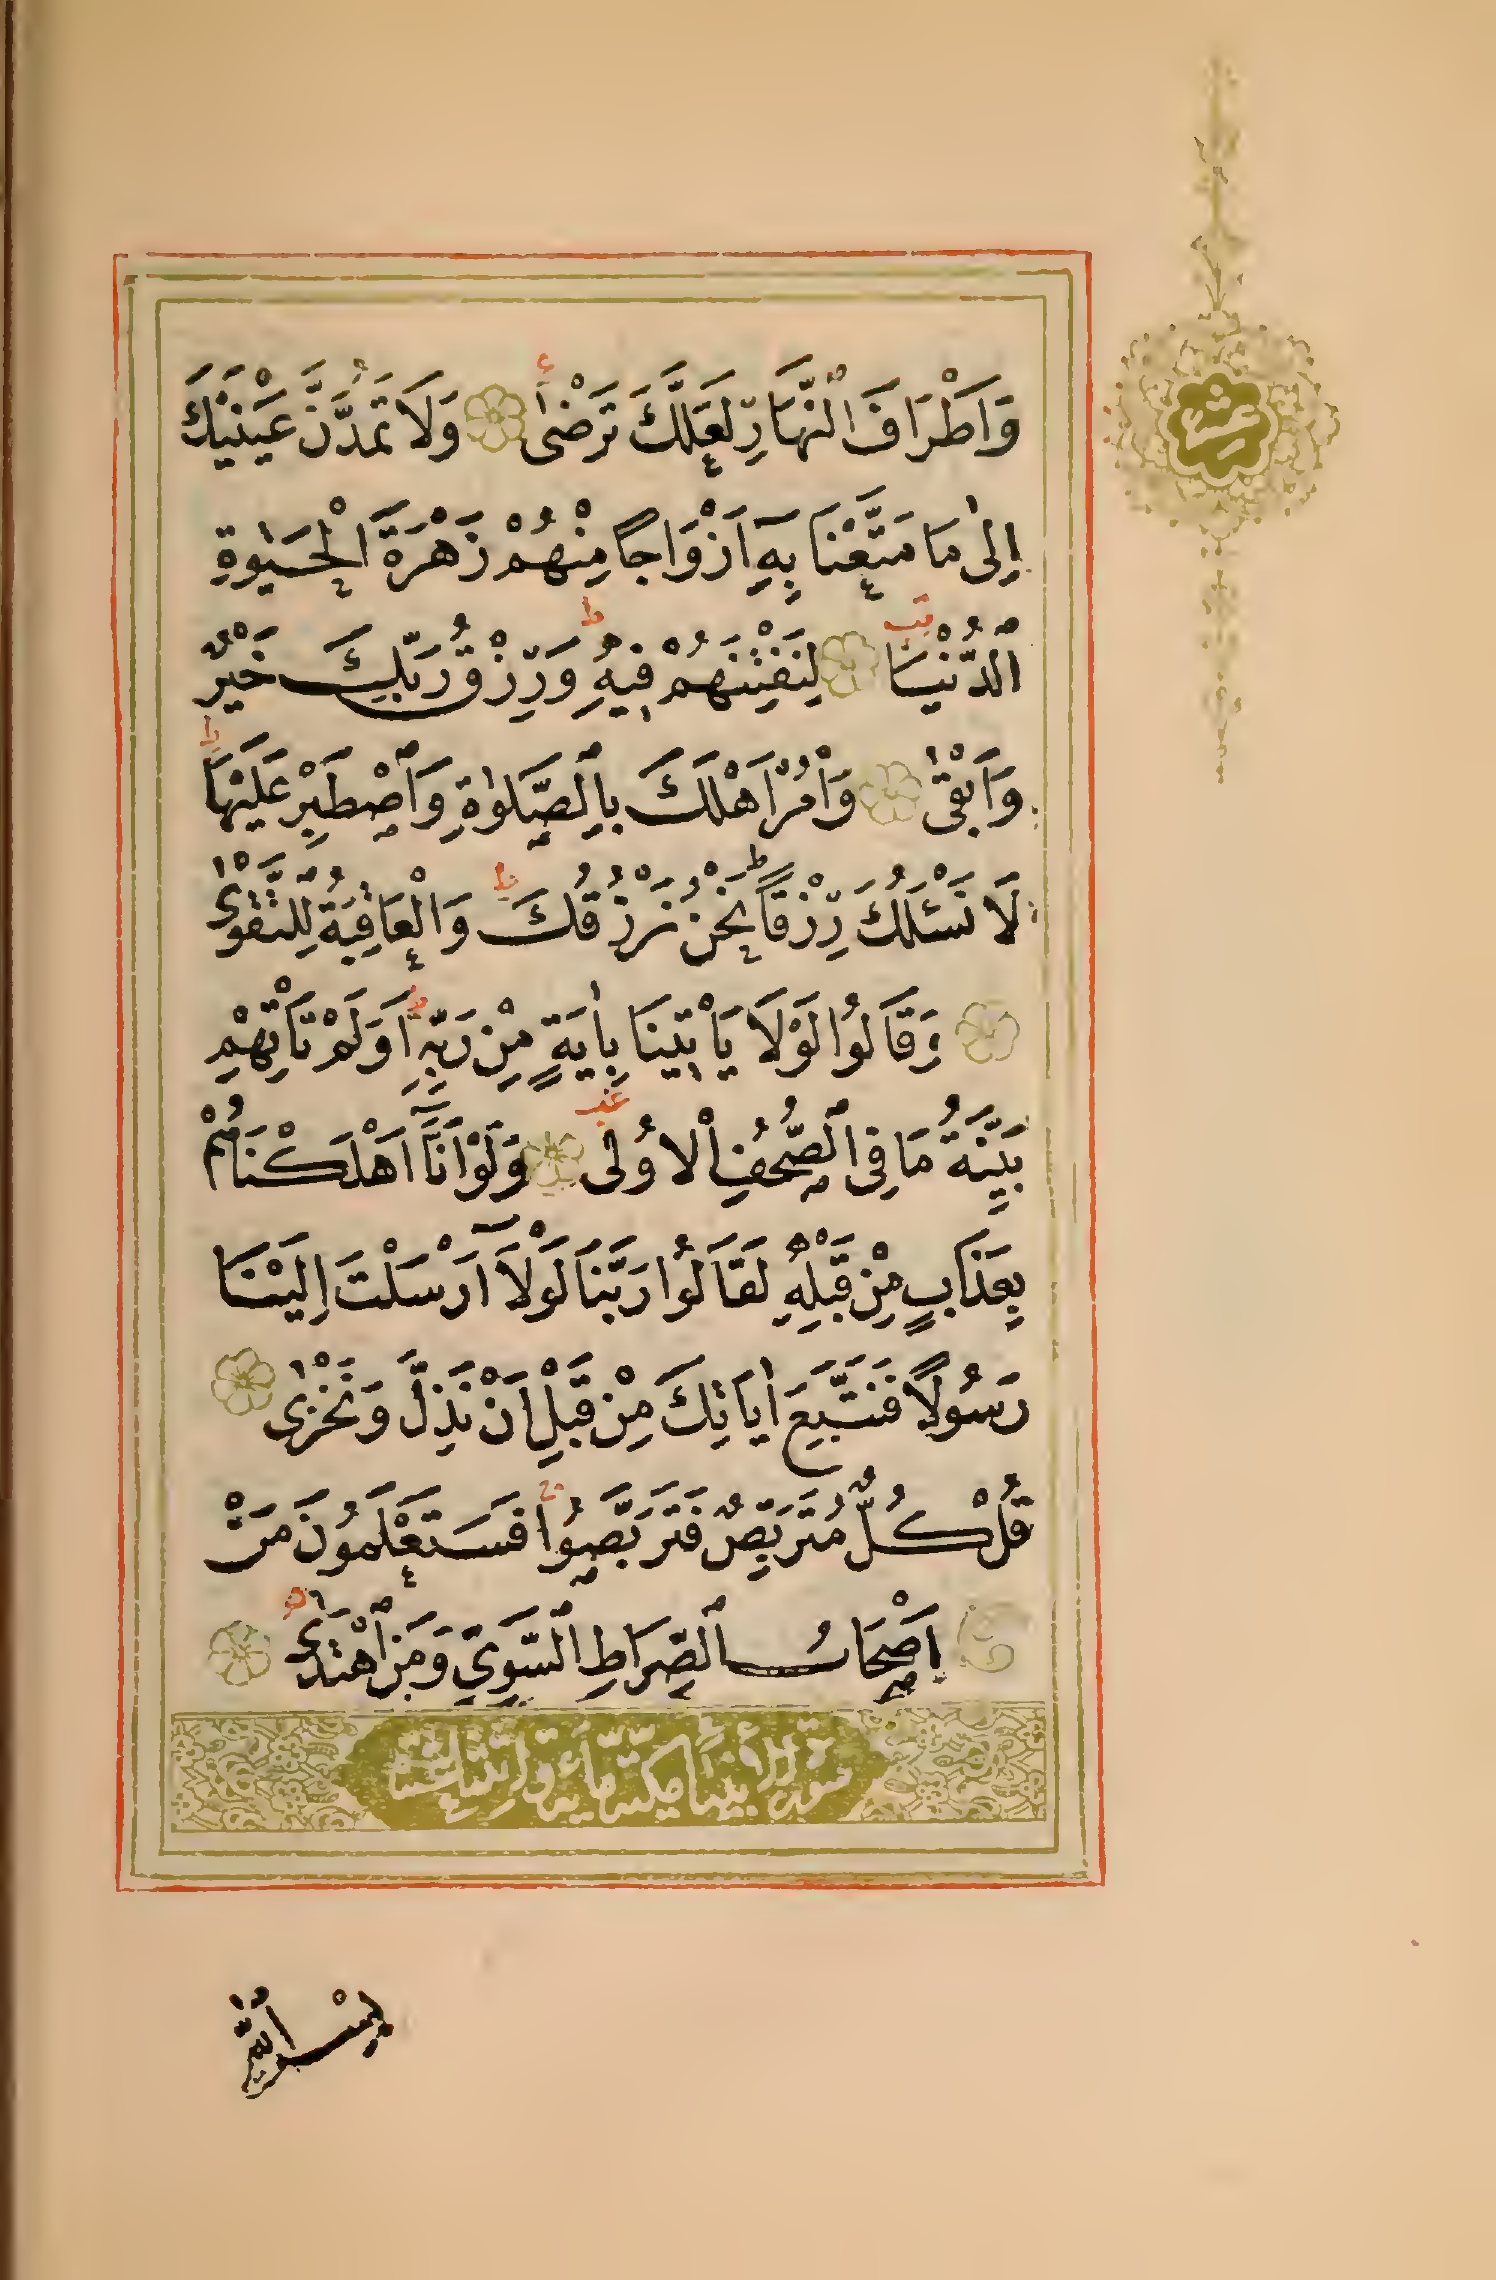 وَاَطْرَافَ النَّهَارِ لَعَلَّكَ تَرْضٰى وَلَا تَمُدَّنَّ عَيْنَيْكَ
عشر
اِلٰى مَا مَتَّعْنَا بِهٖٓ اَزْوَاجًا مِنْهُمْ زَهْرَةَ الْحَيٰوةِ
الدُّنْيَا لِنَفْتِنَهُمْ فِيهِ وَرِزْقُ رَبِّكَ خَيْرٌ
وَاَبْقٰى وَأْمُرْ اَهْلَكَ بِالصَّلٰوةِ وَاصْطَبِرْ عَلَيْهَا
لَا نَسْـَٔلُكَ رِزْقًا نَحْنُ نَرْزُقُكَ وَالْعَاقِبَةُ لِلتَّقْوٰى
وَقَالُوا لَوْلَا يَأْتِينَا بِاٰيَةٍ مِنْ رَبِّهٖ اَوَلَمْ تَأْتِهِمْ
بَيِّنَةُ مَا فِي الصُّحُفِ الْاُولٰى وَلَوْ اَنَّٓا اَهْلَكْنَاهُمْ
بِعَذَابٍ مِنْ قَبْلِهٖ لَقَالُوا رَبَّنَا لَوْلَٓا اَرْسَلْتَ اِلَيْنَا
رَسُولًا فَنَتَّبِعَ اٰيَاتِكَ مِنْ قَبْلِ اَنْ نَذِلَّ وَنَخْزٰى
قُلْ كُلٌّ مُتَرَبِّصٌ فَتَرَبَّصُوا فَسَتَعْلَمُونَ مَنْ
اَصْحَابُ الصِّرَاطِ السَّوِيِّ وَمَنِ اهْتَدٰى
سورة الانبياء مكية مائة واثنتا عشرة
بِسْمِ اللّٰهِ